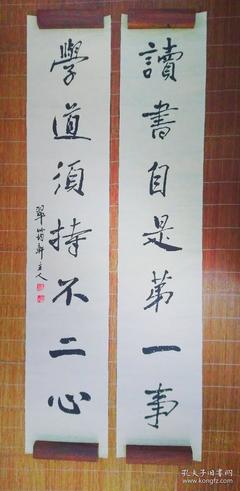 讀書自是第一事
學道須持不二心
翠竹軒主人
孔夫子旧书网